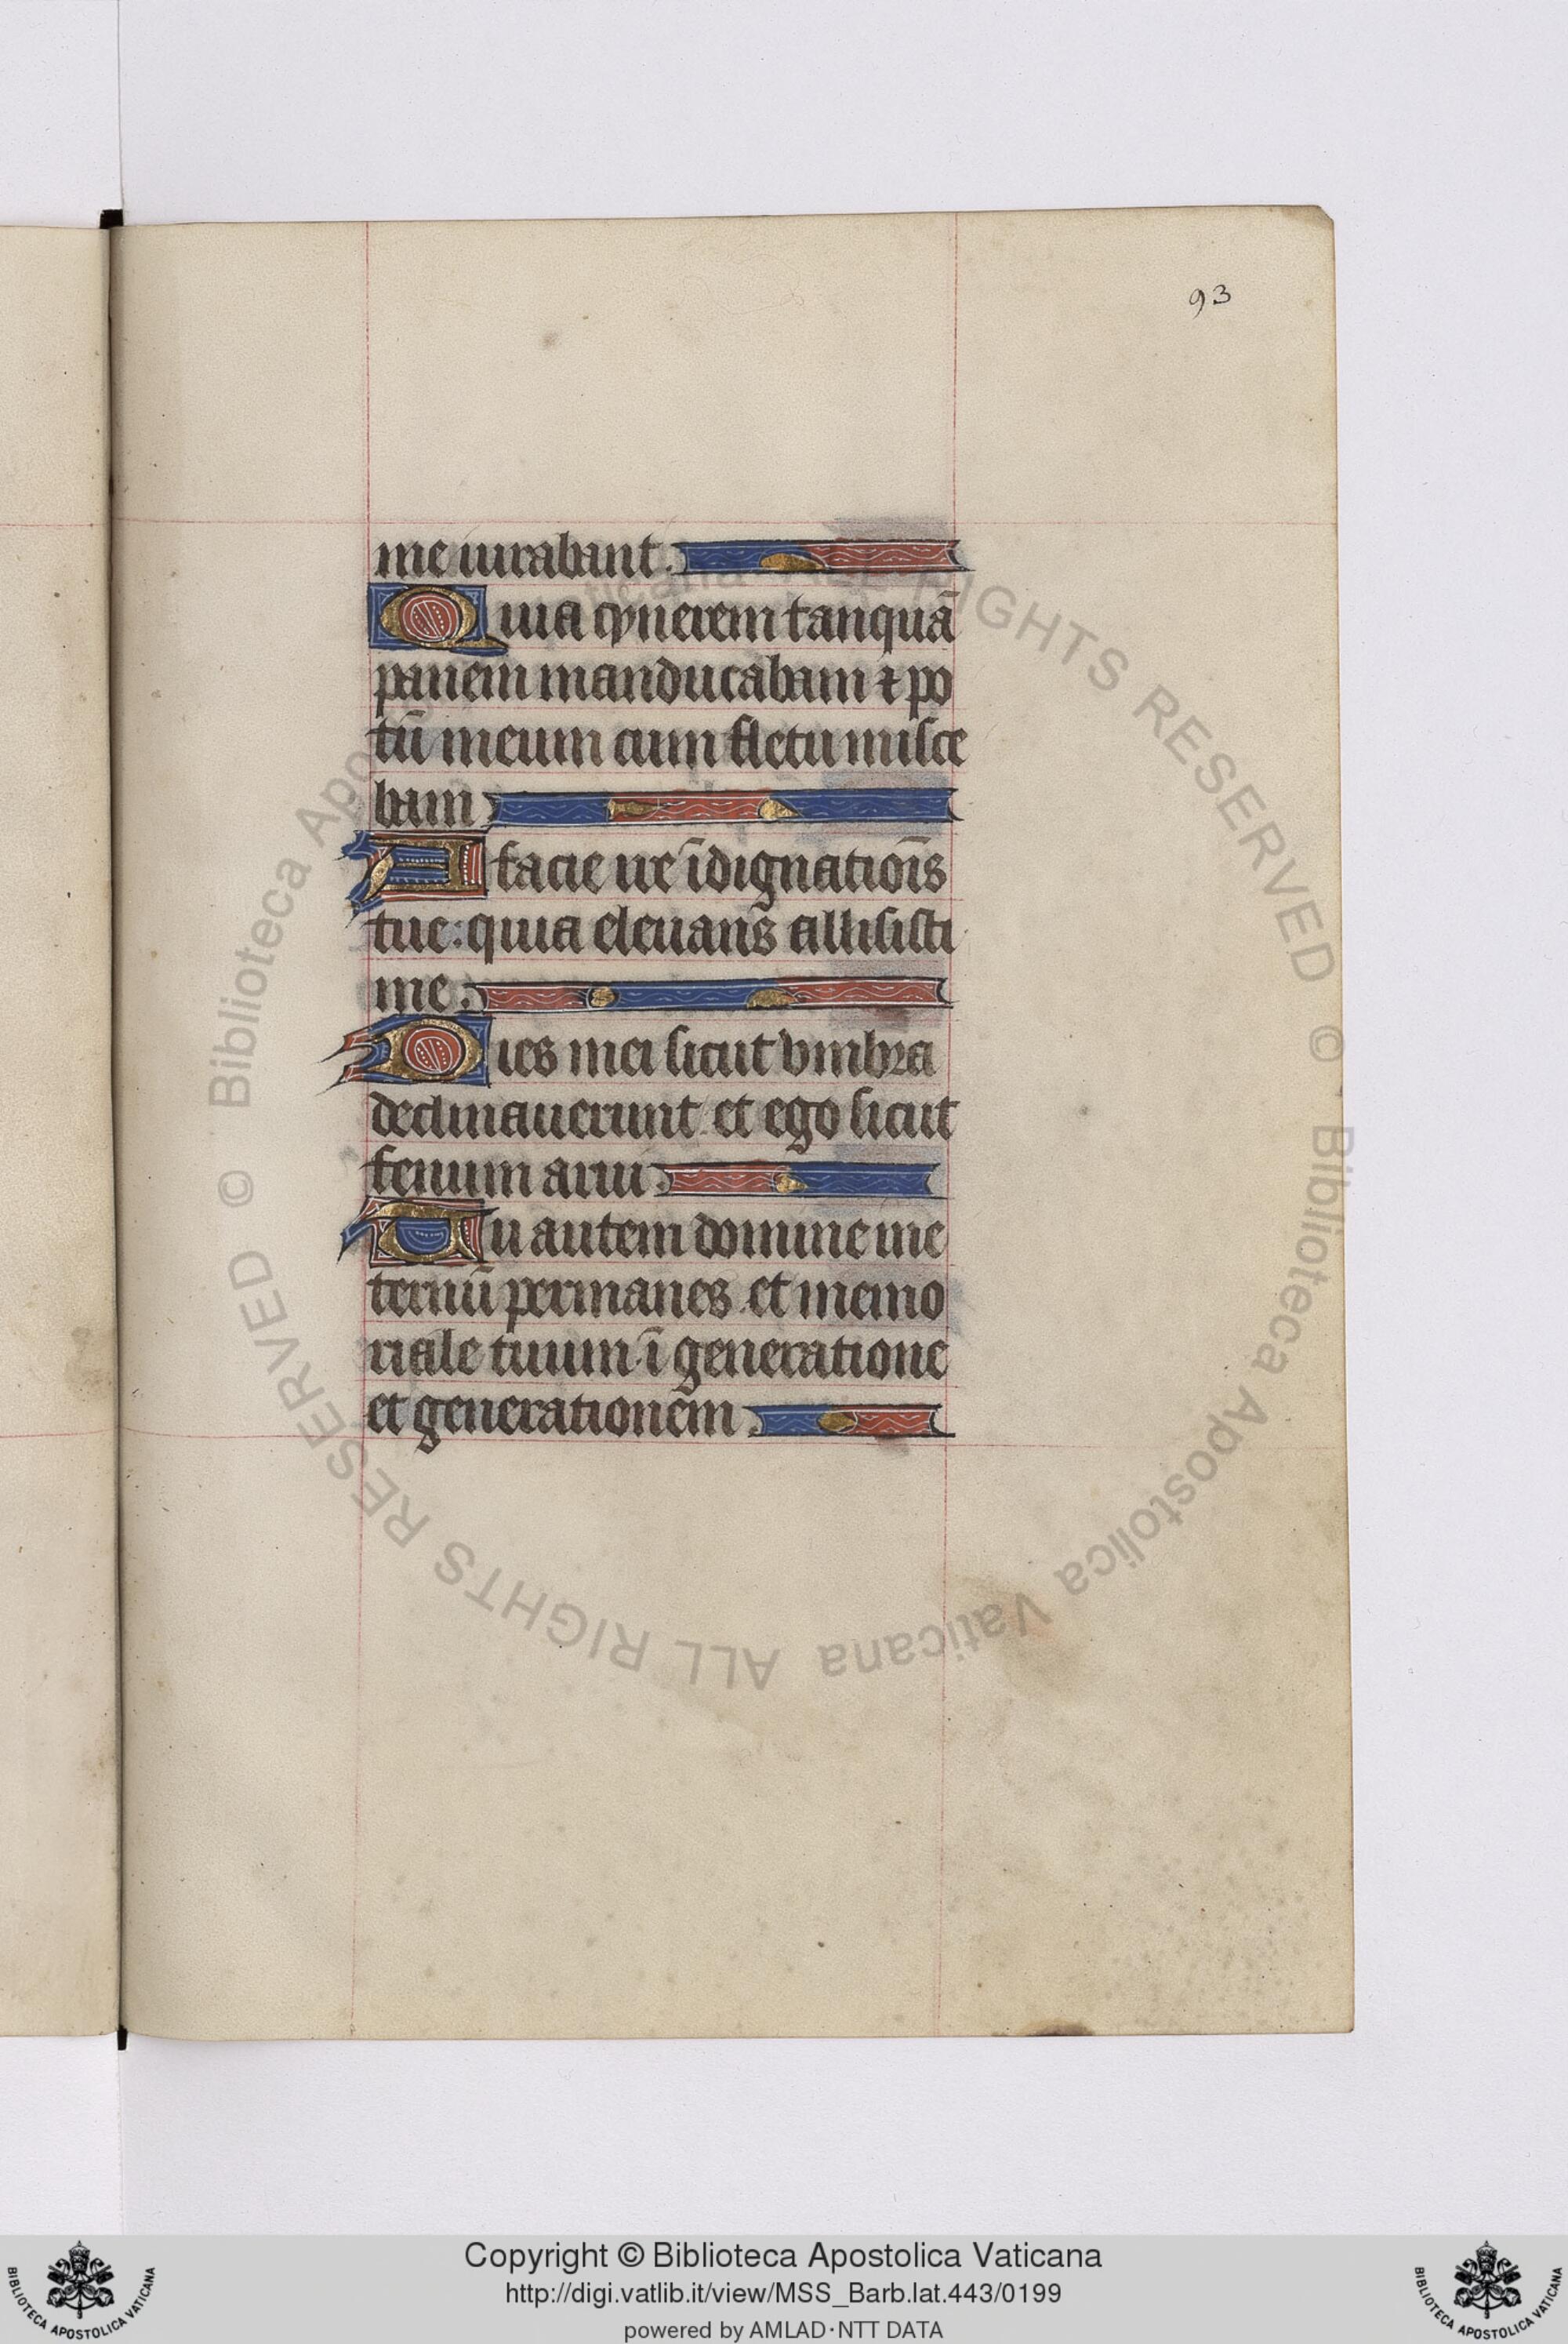 93
me iurabant.
Quia cynerem tanquā
panem manducabam ⁊ po
tū meum cum fletu misce
bam
A facie ire īdignatiōīs
tue: quia eleuans allisisti
me.
Dies mei sicut vmbra
declinauerunt. et ego sicut
fenum arui.
Tu autem domine ine
ternū permanes. et memo
riale tuum ī generatione
et generationem.
© Biblioteca Apostolica Vaticana ALL RIGHTS RESERVED
© Biblioteca Apostolica Vaticana ALL RIGHTS RESERVED
Copyright © Biblioteca Apostolica Vaticana
http://digi.vatlib.it/view/MSS_Barb.lat.443/0199
powered by AMLAD·NTT DATA
BIBLIOTECA APOSTOLICA VATICANA
BIBLIOTECA APOSTOLICA VATICANA